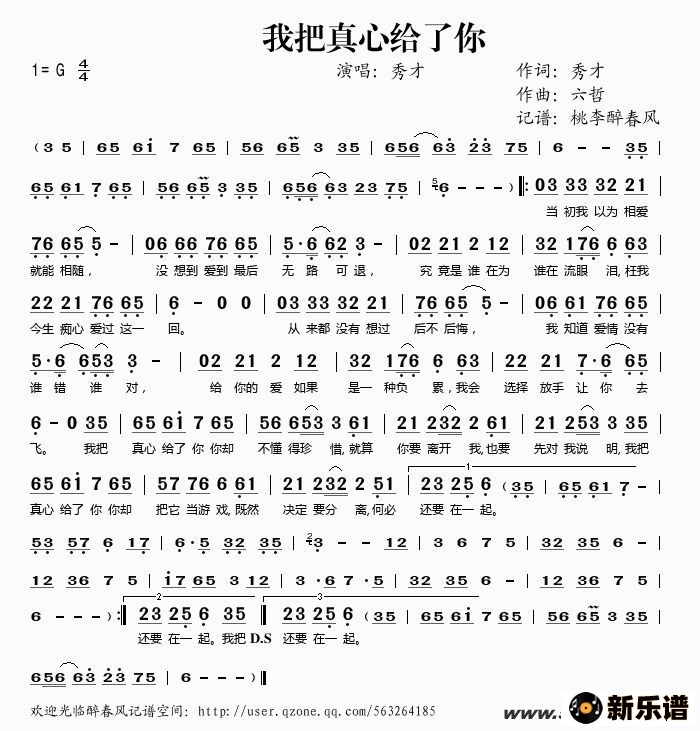 我把真心给了你
1= G 4/4 演唱：秀才 作词：秀才
作曲：六哲
记谱：桃李醉春风
( 3 5 | 65 6i 7 65 | 56 65 3 35 | 656 63 23 75 | 6 - - 35 |
65 61 7 65 | 56 65 3 35 | 656 63 23 75 | 5 6 - - ) ‖: 03 33 32 21 |
当 初我 以为 相爱
76 65 5 - | 06 66 76 65 | 5·6 62 3 - | 02 21 2 12 | 32 176 6 63 |
就能 相随， 没 想到 爱到 最后 无 路 可 退， 究 竟是 谁 在为 谁在 流眼 泪，枉我
22 21 76 65 | 6 - 0 0 | 03 33 32 21 | 76 65 5 - | 06 61 76 65 |
今生 痴心 爱过 这一 回。 从 来都 没有 想过 后不 后悔， 我 知道 爱情 没有
5·6 653 3 - | 02 21 2 12 | 32 176 6 63 | 22 21 7·6 65 |
谁 错 谁 对， 给 你的 爱 如果 是一 种负 累，我会 选择 放手 让 你 去
6 - 0 35 | 65 6i 7 65 | 56 653 3 61 | 21 232 2 61 | 21 253 3 35 |
飞。 我把 真心 给了 你 你却 不懂 得珍 惜，就算 你要 离开 我，也要 先对 我说 明，我把
65 6i 7 65 | 57 76 6 61 | 21 232 2 61 | 1 23 25 6 (35 | 65 61 7 - |
真心 给了 你 你却 把它 当游 戏，既然 决定 要分 离，何必 还要 在一 起。
53 57 6 17 | 6·5 32 35 | 2 3 - - 12 | 3 36 7 5 | 32 35 6 - |
12 36 7 5 | i7 65 3 12 | 3 ·6 7 ·5 | 32 12 3 5 |
6 - - - ) :‖ 2 23 25 6 35 ‖ 3 23 25 6 (35 | 65 61 7 65 | 56 65 3 35 |
还要 在一 起。我把 D.S 还要 在一 起。
656 63 23 75 | 6 - - - ) ‖
欢迎光临醉春风记谱空间：http://user.qzone.qq.com/563264185
www.
新乐谱